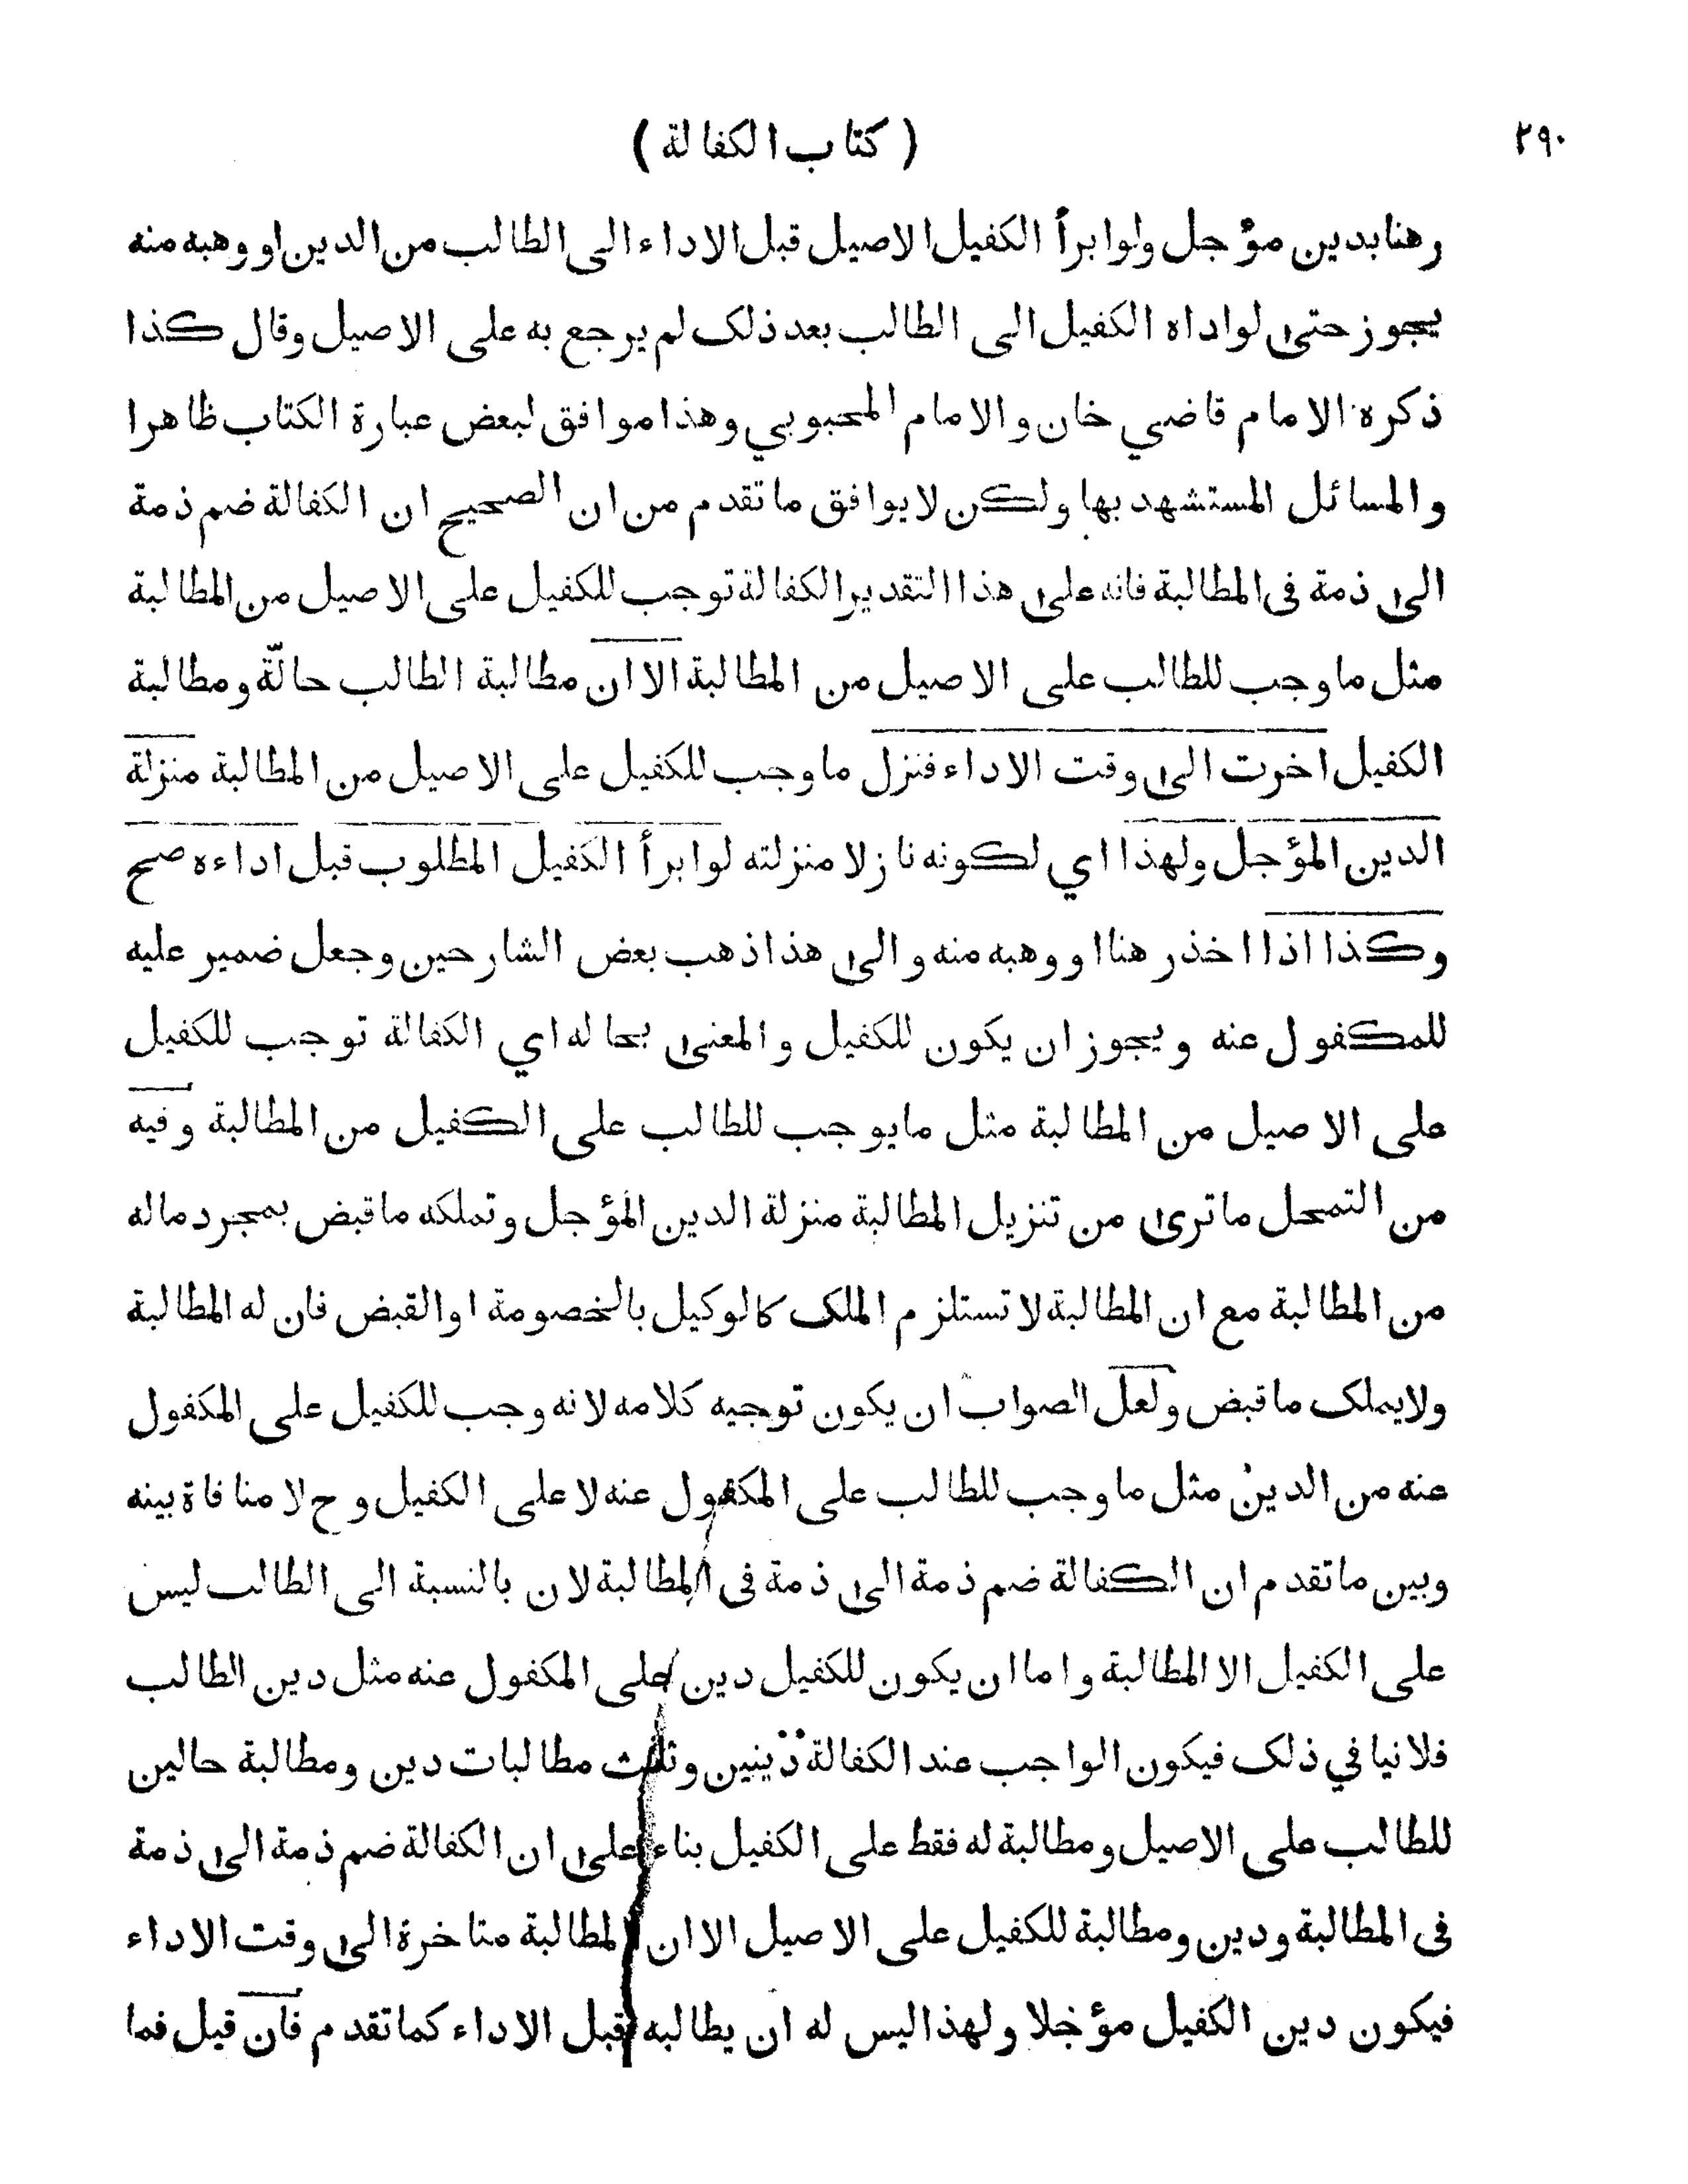 ٢٩٠
( كتاب الكفالة )
رهنا بدين مؤجل ولو ابرأ الكفيل الاصيل قبل الاداء الى الطالب من الدين او وهبه منه
يجوز حتى لو اداه الكفيل الى الطالب بعد ذلك لم يرجع به على الاصيل وقال كذا
ذكره الامام قاضي خان والامام المحبوبي وهذا موافق لبعض عبارة الكتاب ظاهرا
والمسائل المستشهد بها ولكن لا يوافق ما تقدم من ان الصحيح ان الكفالة ضم ذمة
الى ذمة في المطالبة فانه على هذا التقدير الكفالة توجب للكفيل على الاصيل من المطالبة
مثل ما وجب للطالب على الاصيل من المطالبة الا ان مطالبة الطالب حالّة ومطالبة
الكفيل اخرت الى وقت الاداء فنزل ما وجب للكفيل على الاصيل من المطالبة منزلة
الدين المؤجل ولهذا اي لكونه نازلا منزلته لو ابرأ الكفيل المطلوب قبل اداءه صح
وكذا اذا اخذ رهنا او وهبه منه والى هذا ذهب بعض الشارحين وجعل ضمير عليه
للمكفول عنه ويجوز ان يكون للكفيل والمعنى بحاله اي الكفالة توجب للكفيل
على الاصيل من المطالبة مثل ما يوجب للطالب على الكفيل من المطالبة وفيه
من التمحل ما ترى من تنزيل المطالبة منزلة الدين المؤجل وتملكه ما قبض بمجرد ماله
من المطالبة مع ان المطالبة لا تستلزم الملك كالوكيل بالخصومة او القبض فان له المطالبة
ولا يملك ما قبض ولعل الصواب ان يكون توجيه كلامه لانه وجب للكفيل على المكفول
عنه من الدين مثل ما وجب للطالب على المكفول عنه لا على الكفيل وح لا منافاة بينه
وبين ما تقدم ان الكفالة ضم ذمة الى ذمة في المطالبة لان بالنسبة الى الطالب ليس
على الكفيل الا المطالبة واما ان يكون للكفيل دين على المكفول عنه مثل دين الطالب
فلا نيافي ذلك فيكون الواجب عند الكفالة دينين وثلث مطالبات دين ومطالبة حالين
للطالب على الاصيل ومطالبة له فقط على الكفيل بناء على ان الكفالة ضم ذمة الى ذمة
في المطالبة ودين ومطالبة للكفيل على الاصيل الا ان المطالبة متاخرة الى وقت الاداء
فيكون دين الكفيل مؤخلا ولهذا ليس له ان يطالبه قبل الاداء كما تقدم فان قيل فما